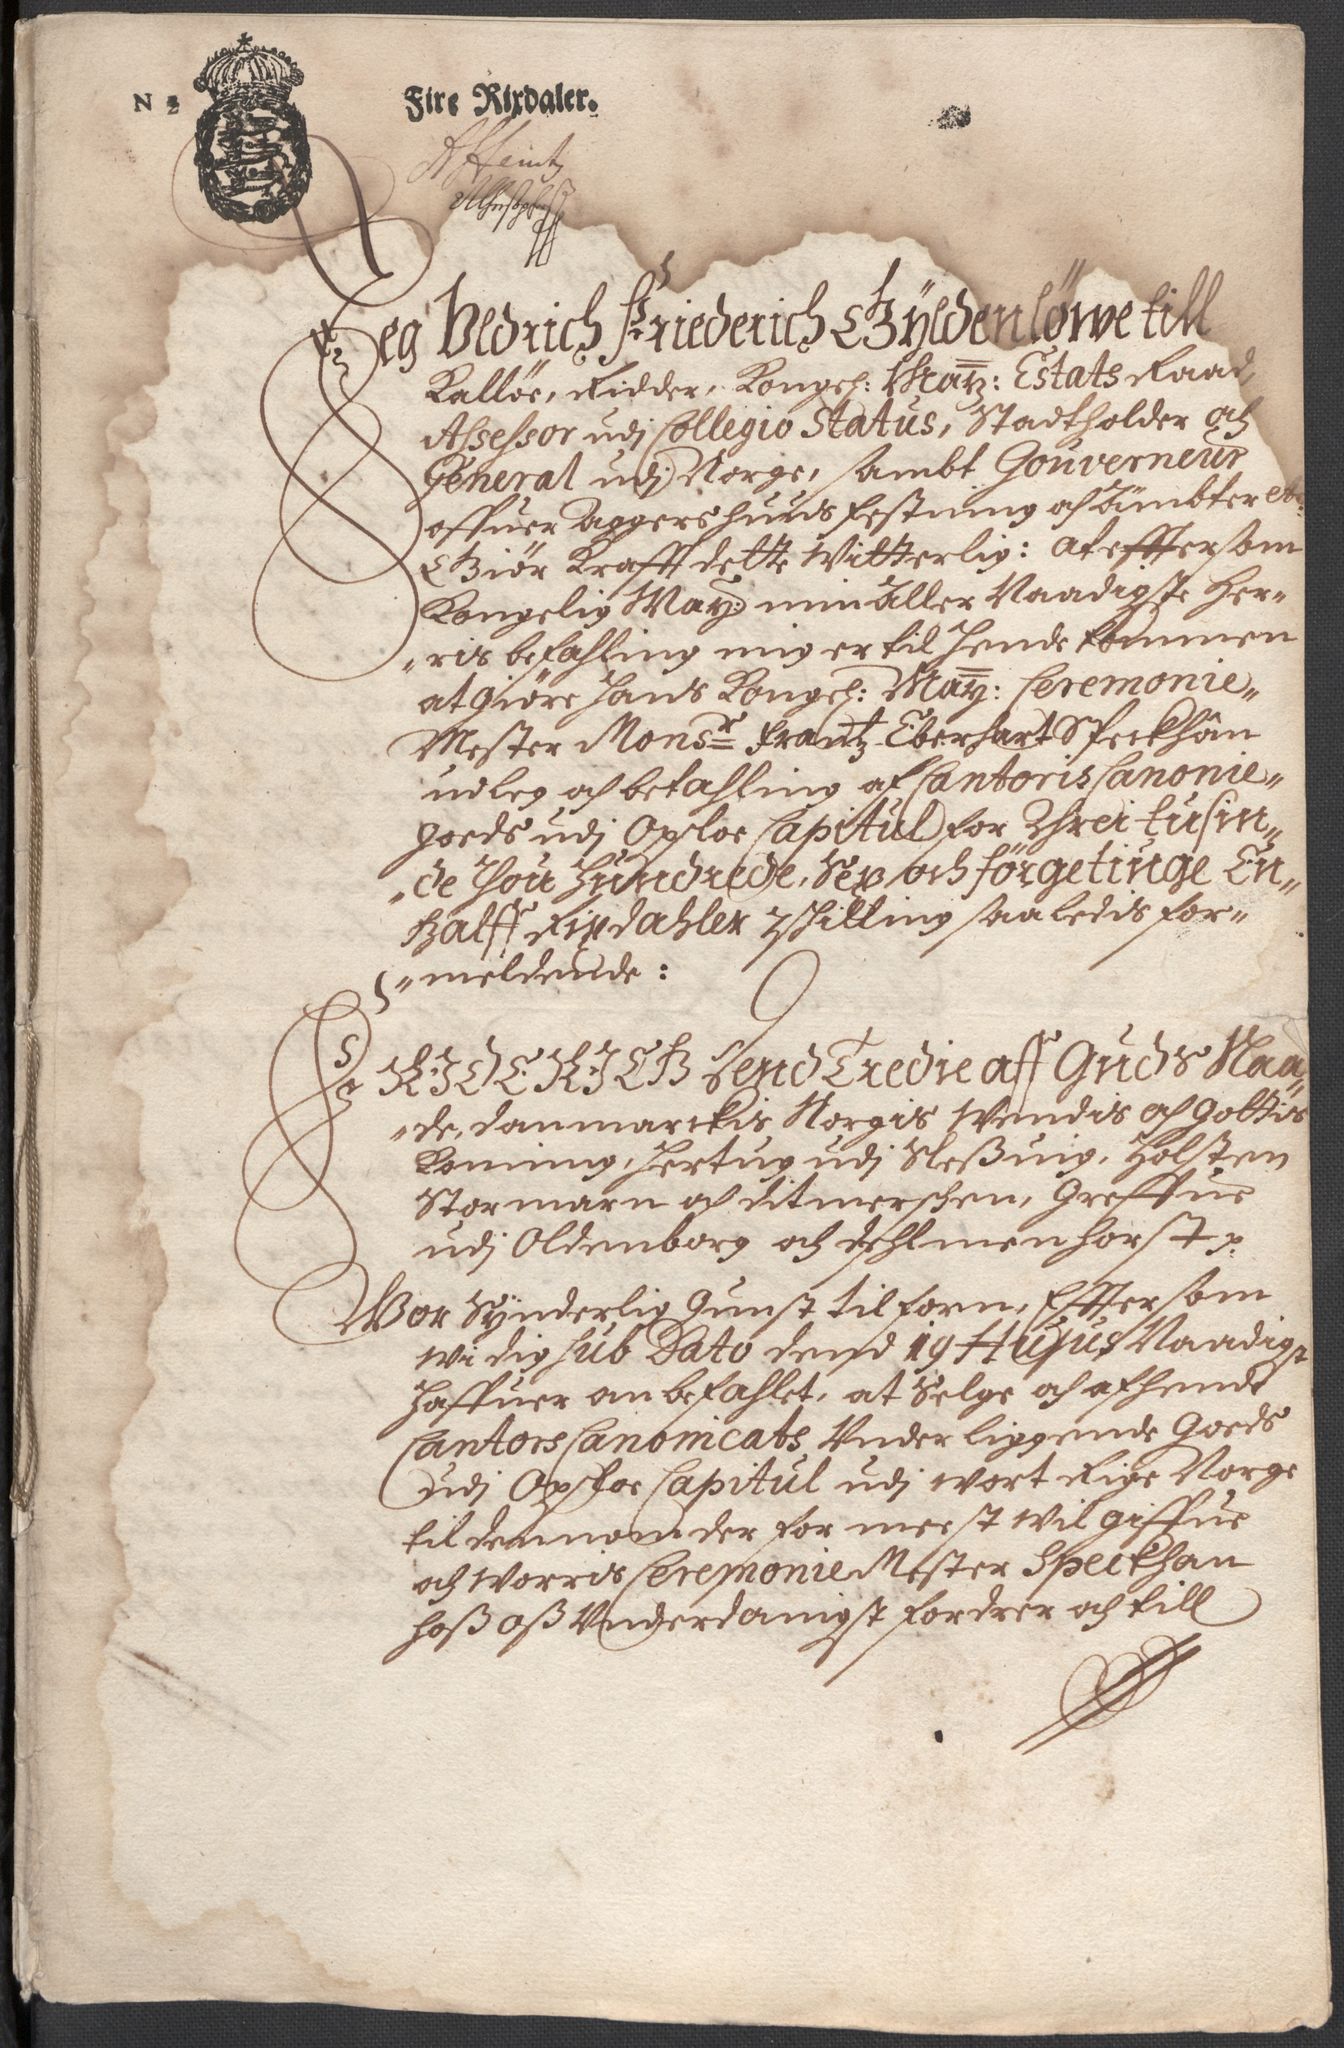 N 2
Fire Rixdaler.
Jeg Vldrich Friederich Gÿldenløwe till
Kalløe, Ridder, Kongel: Maÿ: Estats Raad,
Assessor udj Collegio Status, Stadtholder och
General udj Norge, sambt Gouverneur
offuer Aggershuus festning och Ambter etc:
Giør Krafft dette Witterlig: At efftersom
Kongelig Maÿ: min Aller Naadigste Her-
"ris befahling mig er til Hende kommen
at giøre Hans Kongel: Maÿ: Ceremonie-
Mester Monsr Frantz Eberhart Speckhan
udleg och betahling af Cantoris Canonie-
goeds udj Opsloe Capitul for Threi tusin-
"de Thou Hundrede, Sex och förgetiuge En-
Halff Rixdahler 7 skilling saaledis for-
"meldende:
FRIDERICH Dend Tredie aff Guds Naa-
"de, Danmarckis Norgis Wendis och Gottis
Konning, Hertug udj Sleßuig, Holsten
Stormarn och Ditmerschen, Greffue
udj Oldenborg och Dehlmenhorst p.
Wor Synderlig Gunst tilforn, Efftersom
wi dig sub Dato dend 19 Hujus Naadigst
Haffuer anbefahlet, at Selge och afhende
Cantors Canonicats Vnderliggende Goeds
udj Opsloe Capitul udj wort Rige Norge
til dennom der for meest wil giffue
och worris Ceremonie Mester Speckhan
hoß oß Vnderdanigst fordrer och till